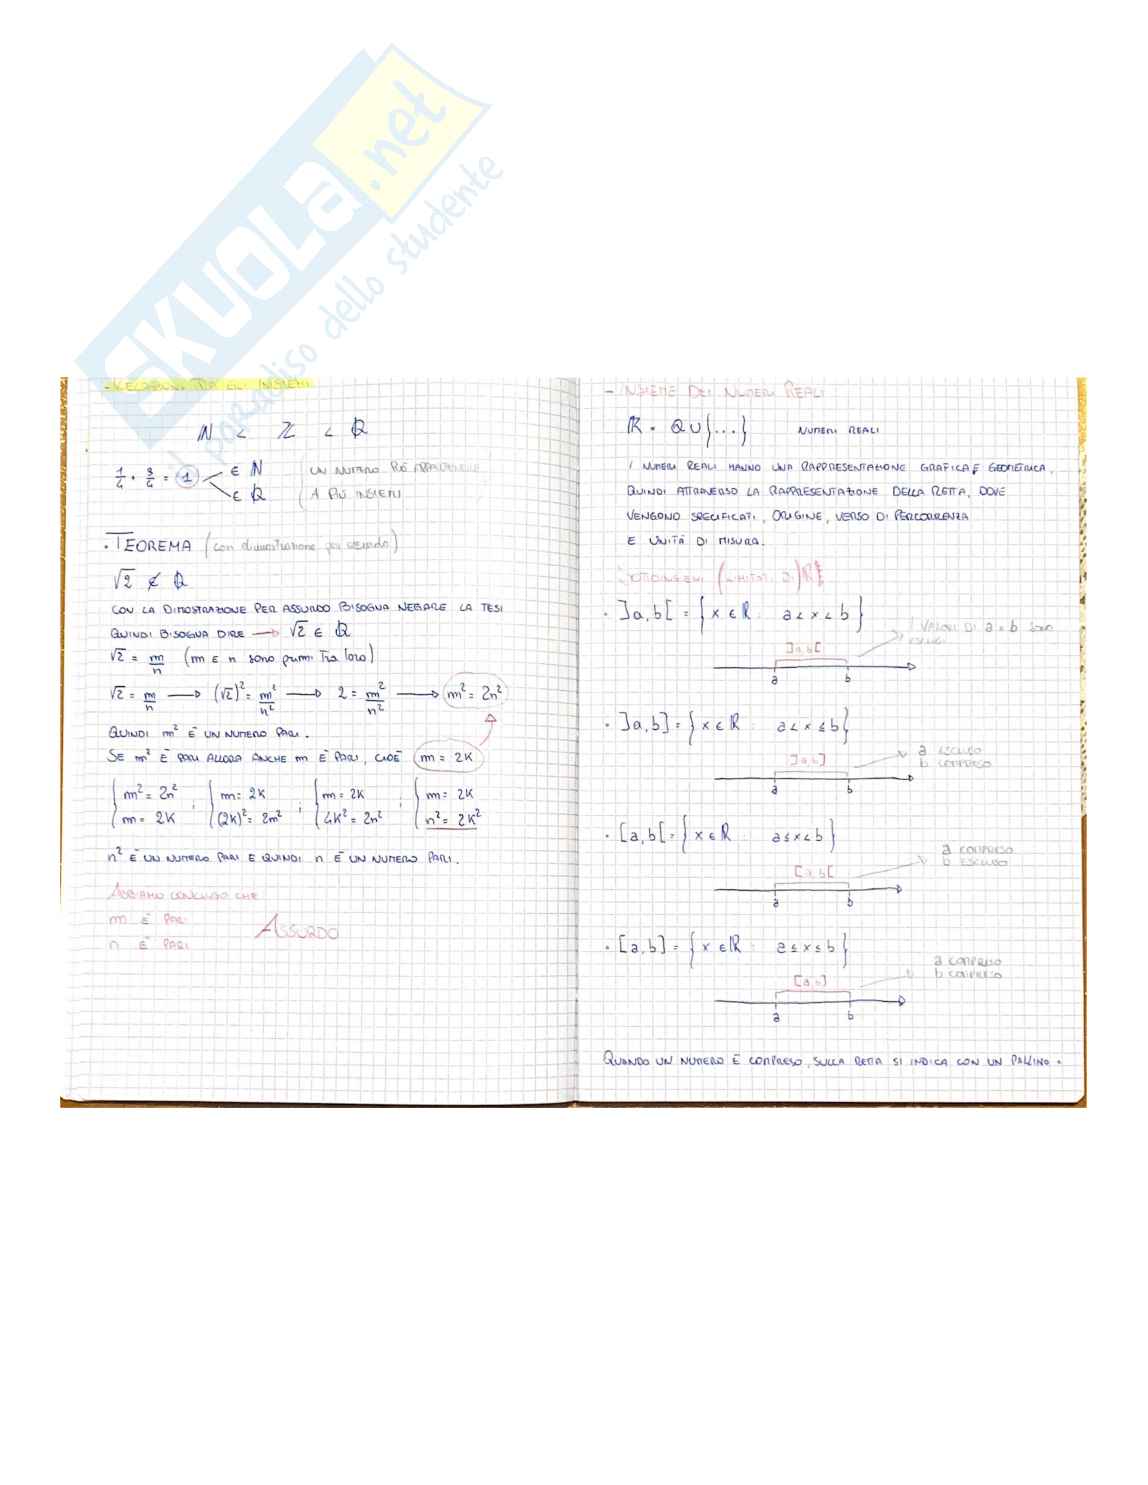 SKUOLA.net
il paradiso dello studente
- RELAZIONI TRA GLI INSIEMI
N < Z < Q
1/4 · 3/4 = 1 ∈ N
∈ Q
UN NUMERO PUÒ APPARTENERE
A PIÙ INSIEMI
· TEOREMA (con dimostrazione per assurdo)
√2 ∉ Q
CON LA DIMOSTRAZIONE PER ASSURDO BISOGNA NEGARE LA TESI
QUINDI BISOGNA DIRE → √2 ∈ Q
√2 = m/n (m E n sono primi tra loro)
√2 = m/n → (√2)² = m²/n² → 2 = m²/n² → m² = 2n²
QUINDI m² È UN NUMERO PARI.
SE m² È PARI ALLORA ANCHE m È PARI, CIOÈ m = 2K
{ m² = 2n² ; { m = 2K ; { m = 2K ; { m = 2K
m = 2K (2K)² = 2m² 4K² = 2n² n² = 2K²
n² È UN NUMERO PARI E QUINDI n È UN NUMERO PARI.
ABBIAMO CONCLUSO CHE
m È PARI
n È PARI
ASSURDO
- INSIEME DEI NUMERI REALI
R = Q ∪ {...} NUMERI REALI
I NUMERI REALI HANNO UNA RAPPRESENTAZIONE GRAFICA E GEOMETRICA,
QUINDI ATTRAVERSO LA RAPPRESENTAZIONE DELLA RETTA, DOVE
VENGONO SPECIFICATI, ORIGINE, VERSO DI PERCORRENZA
E UNITÀ DI MISURA.
SOTTOINSIEMI (LIMITATI DI) R
· ]a,b[ = { x ∈ R : a < x < b }
I VALORI DI a e b SONO
ESCLUSI
]a,b[
a b
· ]a,b] = { x ∈ R : a < x ≤ b }
a ESCLUSO
b COMPRESO
]a,b]
a b
· [a,b[ = { x ∈ R : a ≤ x < b }
a COMPRESO
b ESCLUSO
[a,b[
a b
· [a,b] = { x ∈ R : a ≤ x ≤ b }
a COMPRESO
b COMPRESO
[a,b]
a b
QUANDO UN NUMERO È COMPRESO, SULLA RETTA SI INDICA CON UN PALLINO •